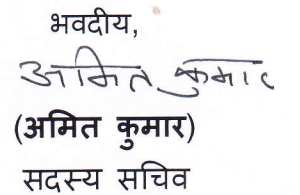 भवदीय,
अमित कुमार
(अमित कुमार)
सदस्य सचिव